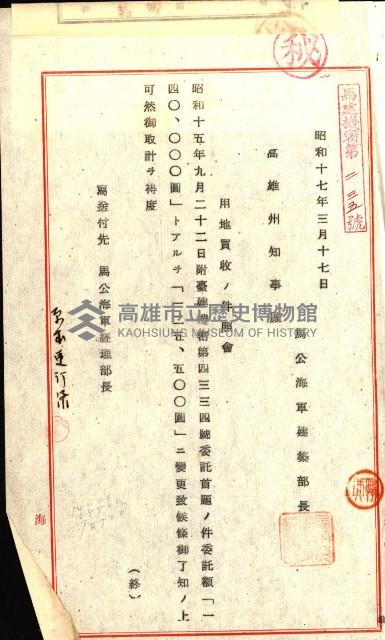 秘
馬建機密第二三五號
昭和十七年三月十七日
馬公海軍建築部長
高雄州知事殿
用地買收ノ件照會
昭和十五年九月二十二日附臺建機密第四三三四號委託首題ノ件委託額「一
四〇、〇〇〇圓」トアルヲ「二二五、五〇〇圓」ニ變更致候條御了知ノ上
可然御取計ヲ得度
(終)
寫送付先 馬公海軍經理部長
海
高雄市立歷史博物館
KAOHSIUNG MUSEUM OF HISTORY